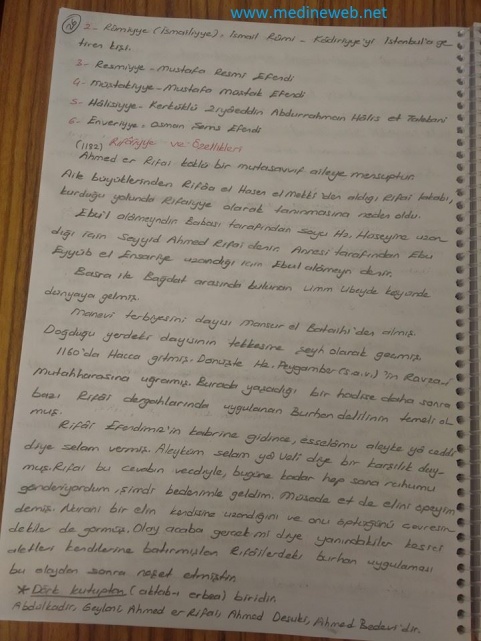 www.medineweb.net
2- Rûmiyye (İsmailiyye)= İsmail Rûmi - Kâdiriyye'yi İstanbul'a ge
tiren kişi.
3- Resmiyye - Mustafa Resmi Efendi
4- Müstakiyye - Mustafa Müştak Efendi
5- Hâlisiyye - Kerküklü Ziyâeddin Abdurrahman Hâlis et Talebani
6- Enveriyye = Osman Şems Efendi
(1182) Rifâiyye ve Özellikleri
Ahmed er Rifai köklü bir mutasavvıf aileye mensuptur.
Aile büyüklerinden Rifâa el Hasen el Mekkî'den aldığı Rifai lakabı,
kurduğu yolunda Rifaiyye olarak tanınmasına neden oldu.
Ebu'l alemeyndin Babası tarafından soyu Hz. Hüseyine uzan
dığı için Seyyid Ahmed Rifai denir. Annesi tarafından Ebu
Eyyüb el Ensariye uzandığı için Ebul alâmeyn denir.
Basra ile Bağdat arasında bulunan Ümm Ubeyde köyünde
dünyaya gelmiş.
Manevi terbiyesini dayısı Mansur el Bataihi'den almış.
Doğduğu yerdeki dayısının tekkesine şeyh olarak geçmiş.
1160'da Hacca gitmiş. Dönüşte Hz. Peygamber (s.a.v.)'in Ravza-i
Mutahharasına uğramış. Burada yaşadığı bir hadise daha sonra
bazı Rifâî dergahlarında uygulanan Burhan delilinin temeli ol
muş.
Rifâî Efendimiz'in kabrine gidince, esselâmu aleyke yâ ceddi
diye selam vermiş. Aleyküm selam yâ Veli diye bir karşılık duy-
muş. Rifai bu cevabın vecdiyle, bugüne kadar hep sana ruhumu
gönderiyordum, şimdi bedenimle geldim. Müsade et de elini öpeyim
demiş. Nurani bir elin kendisine uzandığını ve onu öptüğünü çevresin
dekiler de görmüş. Olay acaba gerçek mi diye yanındakiler kesici
aletleri kendilerine batırmışlar. Rifâilerdeki burhan uygulaması
bu olaydan sonra neşet etmiştir.
* Dört kutuptan (aktab-ı erbea) biridir.
Abdulkadir, Geylani, Ahmed er Rifai, Ahmed Desuki, Ahmed Bedevi'dir.